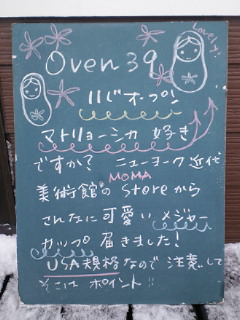 Lovely!
Oven 39
11じオープン
マトリョーシカ 好き
ですか? ニューヨーク近代
MOMA
美術館のStoreから
こんなに可愛いメジャー
カップ届きました!
USA規格なので注意して
そこはポイント!!